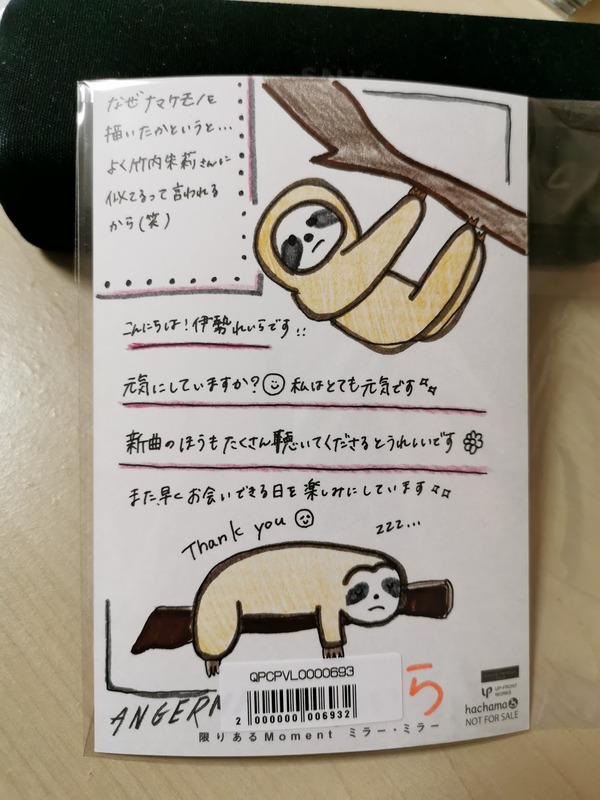 なぜナマケモノを
描いたかというと…
よく竹内朱莉さんに
似てるって言われる
から(笑)
こんにちは！伊勢れいらです!!
元気にしていますか？私はとても元気です
新曲のほうもたくさん聴いてくださるとうれしいです
また早くお会いできる日を楽しみにしています
Thank you
zzz...
QPCPVL0000693
2 000000 006932
ら
UP-FRONT
WORKS
hachama
NOT FOR SALE
ANGERM
限りあるMoment ミラー・ミラー